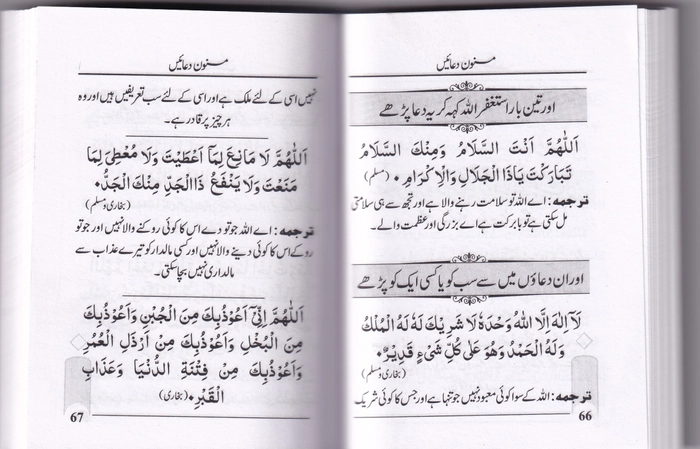 مسنون دعائیں
اور تین بار استغفر اللہ کہہ کر یہ دعا پڑھے
اَللّٰهُمَّ اَنْتَ السَّلَامُ وَمِنْكَ السَّلَامُ
تَبَارَكْتَ يَاذَا الْجَلَالِ وَالْاِكْرَامِ ٠ (مسلم)
ترجمہ: اے اللہ تو سلامت رہنے والا ہے اور تجھ سے ہی سلامتی
مل سکتی ہے تو بابرکت ہے اے بزرگی اور عظمت والے۔
اور ان دعاؤں میں سے سب کو یا کسی ایک کو پڑھے
لَآ اِلٰهَ اِلَّا اللّٰهُ وَحْدَهٗ لَا شَرِيْكَ لَهٗ لَهُ الْمُلْكُ
وَلَهُ الْحَمْدُ وَهُوَ عَلٰى كُلِّ شَىْءٍ قَدِيْرٌ ٠
(بخاری و مسلم)
ترجمہ: اللہ کے سوا کوئی معبود نہیں جو تنہا ہے اور جس کا کوئی شریک
66
مسنون دعائیں
نہیں اسی کے لئے ملک ہے اور اسی کے لئے سب تعریفیں ہیں اور وہ
ہر چیز پر قادر ہے۔
اَللّٰهُمَّ لَا مَانِعَ لِمَآ اَعْطَيْتَ وَلَا مُعْطِىَ لِمَا
مَنَعْتَ وَلَا يَنْفَعُ ذَاالْجَدِّ مِنْكَ الْجَدُّ ٠
(بخاری و مسلم)
ترجمہ: اے اللہ جو تو دے اس کا کوئی روکنے والا نہیں اور جو تو
روکے اس کا کوئی دینے والا نہیں اور کسی مالدار کو تیرے عذاب سے
مالداری نہیں بچا سکتی۔
اَللّٰهُمَّ اِنِّىْٓ اَعُوْذُبِكَ مِنَ الْجُبْنِ وَاَعُوْذُبِكَ
مِنَ الْبُخْلِ وَاَعُوْذُبِكَ مِنْ اَرْذَلِ الْعُمُرِ
وَاَعُوْذُبِكَ مِنْ فِتْنَةِ الدُّنْيَا وَعَذَابِ
الْقَبْرِ ٠ (بخاری)
67